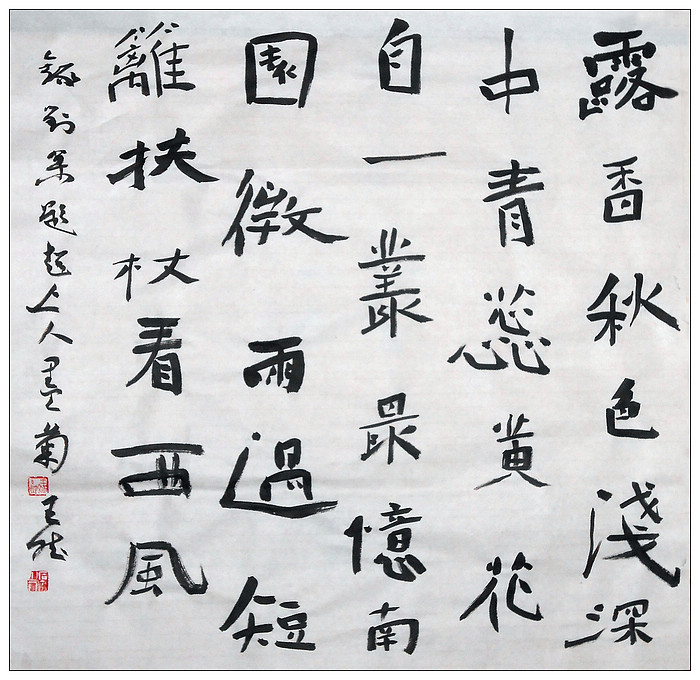 露香秋色淺深
中青蕊黄花
自一叢最憶南
園微雨過短
籬扶杖看西風
錄劉基題起上人墨菊